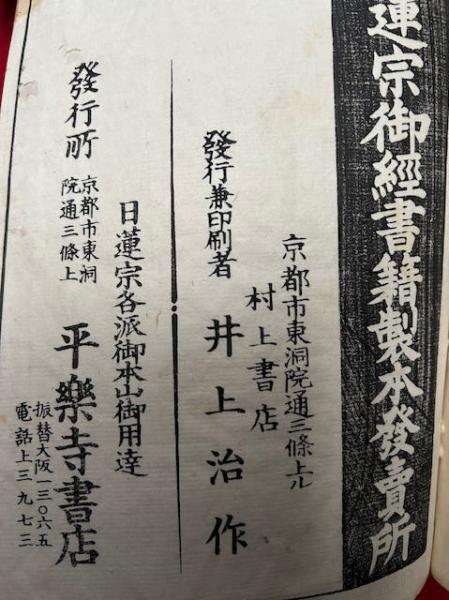 蓮宗御經書籍製本發賣所
京都市東洞院通三條上ル
村上書店
發行兼印刷者 井上治作
日蓮宗各派御本山御用達
發行所 京都市東洞院通三條上 平樂寺書店
振替大阪一三〇六五
電話上三九七三